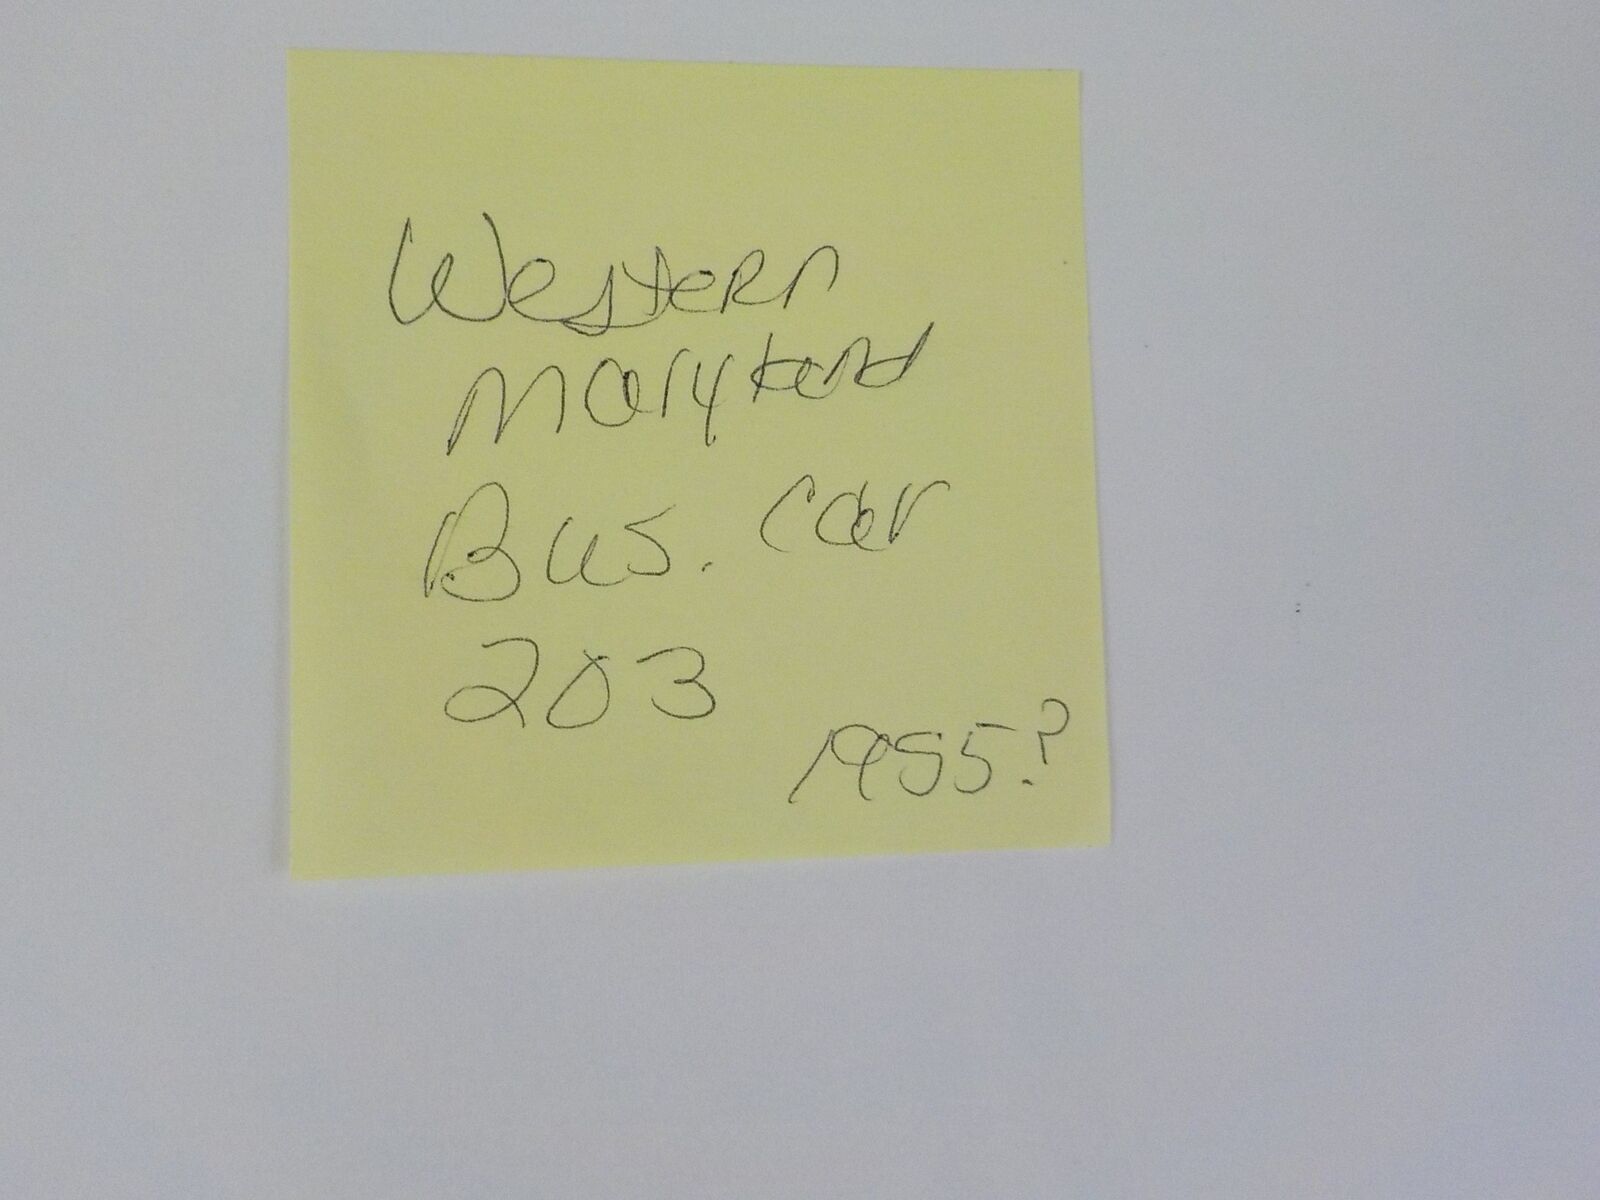 Western
Maryland
Bus. car
203
1955?